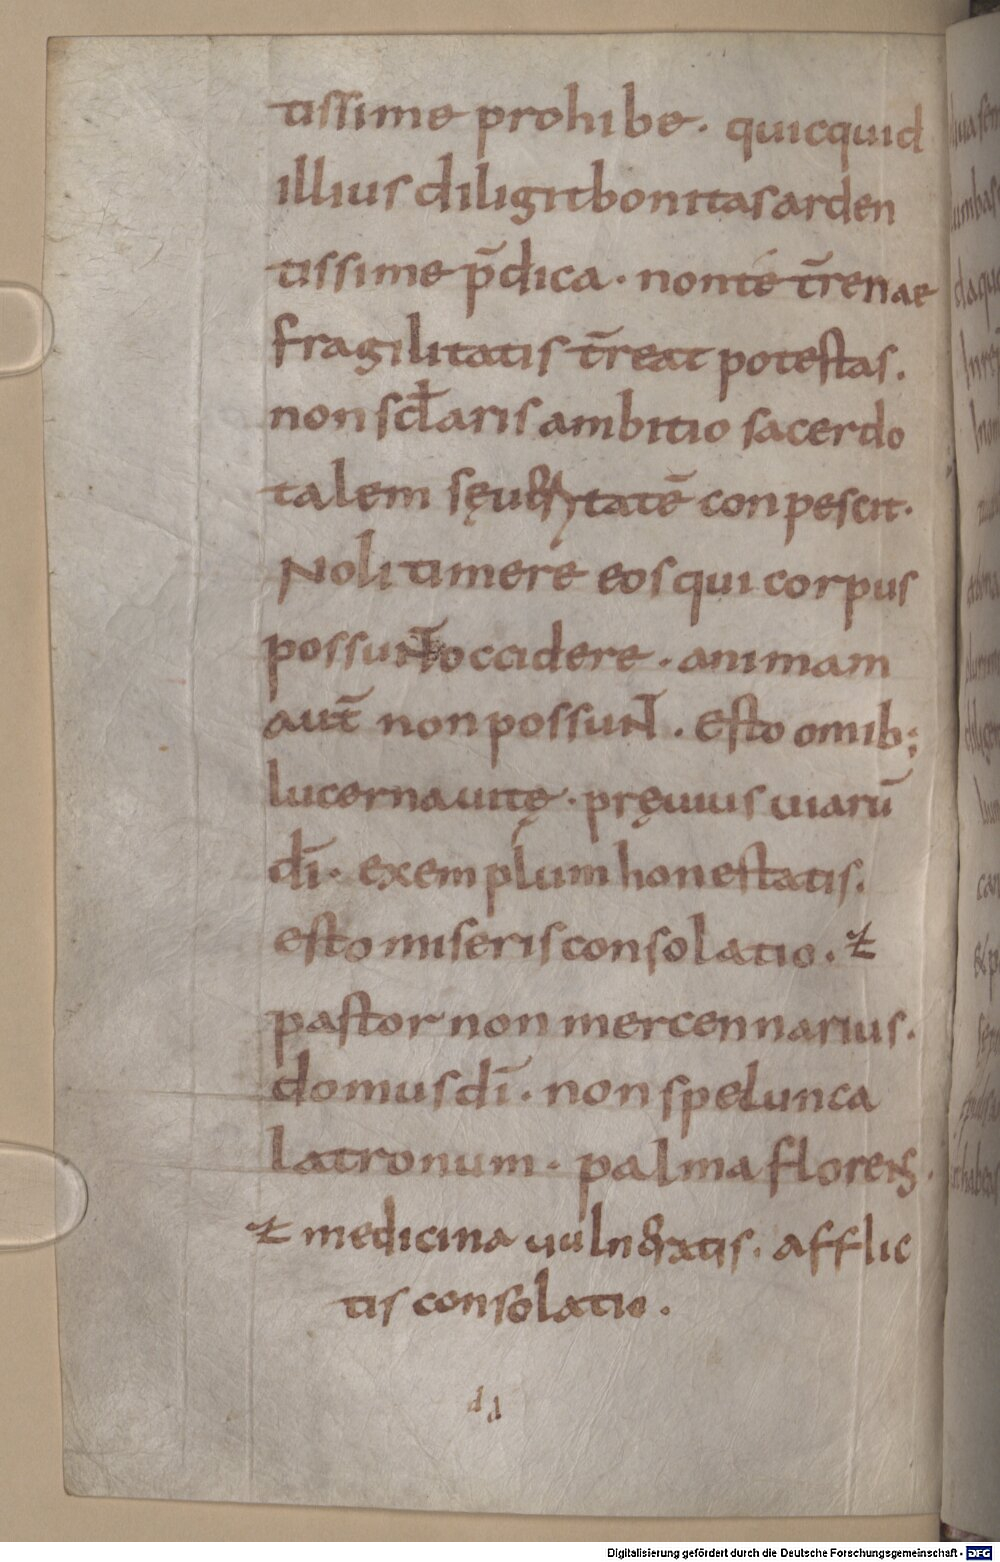 tissime prohibe. quicquid
illius diligit bonitas arden
tissime p̄dica. non te t̄renae
fragilitatis t̄reat potestas.
non scł̄aris ambitio sacerdo
talem sęueritatē conpescit.
Noli timere eos qui corpus
possunt occidere. animam
aut̄ non possunt. esto omib;
lucerna uitę. pręuius uiarū
dī. exemplum honestatis.
esto miseris consolatio. et
pastor non mercennarius.
domus dī. non spelunca
latronum. palma florens.
et medicina uulneratis. afflic
tis consolatio.
d d
Digitalisierung gefördert durch die Deutsche Forschungsgemeinschaft - DFG